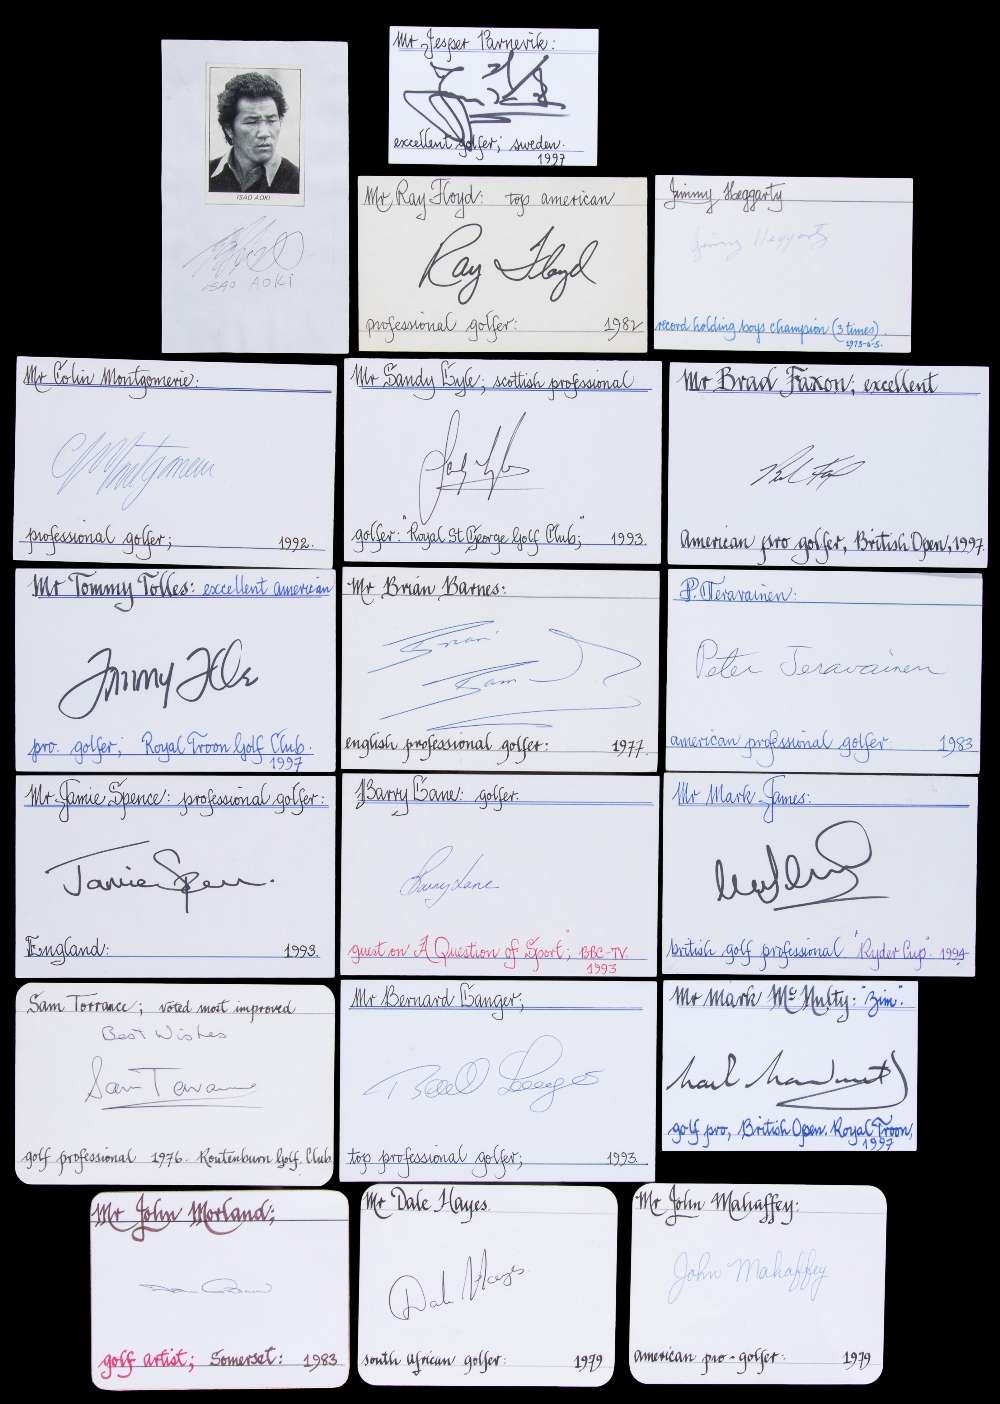 ISAO AOKI
ISAO AOKI
Mr Jesper Parnevik:
excellent golfer; sweden.
1997
Mr Ray Floyd: top american
Ray Floyd
professional golfer: 1982
Jimmy Heggarty
Jimmy Heggarty
record holding boys champion (3 times).
1973-4-5.
Mr Colin Montgomerie:
C Montgomerie
professional golfer; 1992.
Mr Sandy Lyle; scottish professional
Sandy Lyle
golfer: "Royal St George Golf Club; 1993.
Mr Brad Faxon; excellent
Brad Faxon
American pro golfer, British Open, 1997.
Mr Tommy Tolles: excellent american
Tommy Tolles
pro. golfer; Royal Troon Golf Club.
1997
Mr Brian Barnes:
Brian
Barnes
english professional golfer: 1977.
P. Teravainen:
Peter Teravainen
american professional golfer 1983
Mr Jamie Spence: professional golfer:
Jamie Spence.
England: 1993.
Barry Lane: golfer.
Barry Lane
guest on "A Question of Sport"; BBC-TV.
1993
Mr Mark James:
Mark James
british golf professional "Ryder Cup". 1994
Sam Torrance; voted most improved
Best Wishes
Sam Torrance
golf professional 1976. Routenburn Golf. Club
Mr Bernard Langer;
Bernhard Langer
top professional golfer; 1993.
Mr Mark McNulty: "Zim".
Mark McNulty
golf pro, British Open. Royal Troon,
1997
Mr John Morland;
golf artist; Somerset: 1983
Mr Dale Hayes.
Dale Hayes
south african golfer: 1979
Mr John Mahaffey:
John Mahaffey
american pro-golfer: 1979